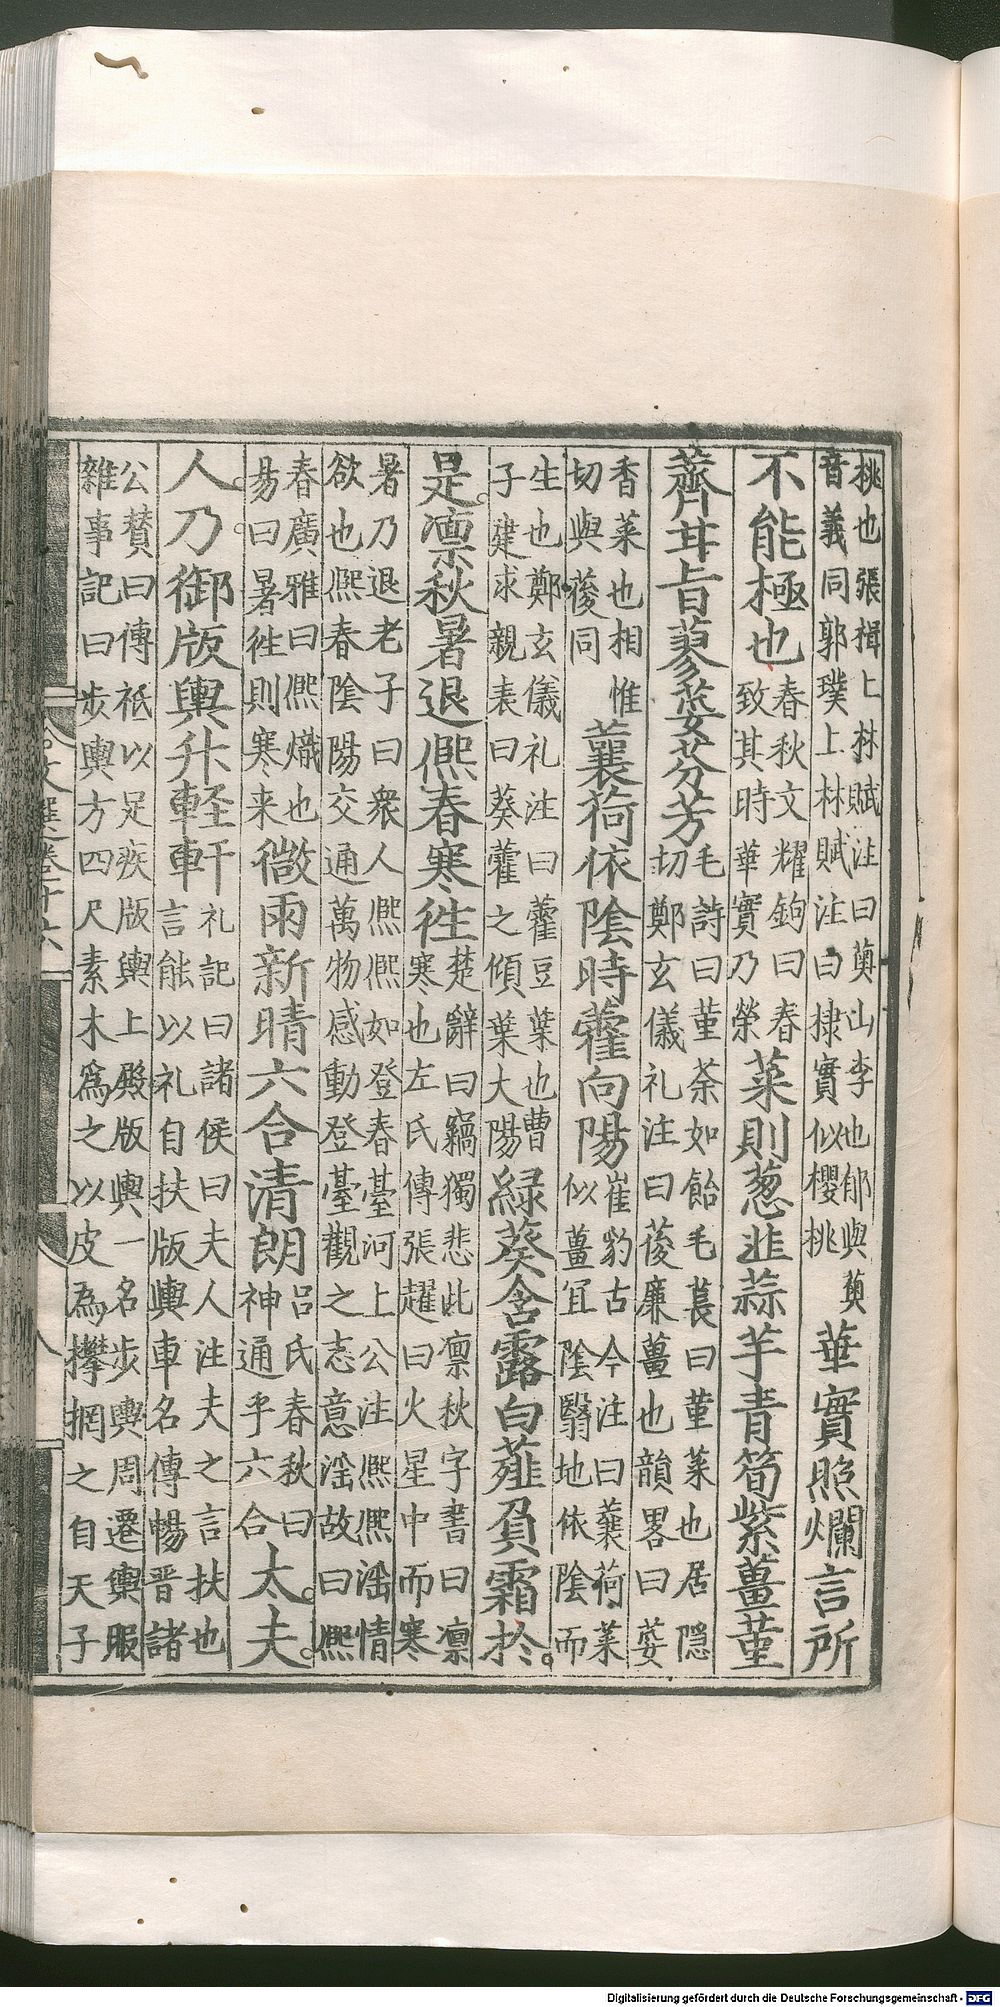 桃也張揖上林賦注曰薁山李也郁與薁
音義同郭璞上林賦注曰棣實似櫻桃
華實照爛言所
不能極也
春秋文耀鉤曰春
致其時華實乃榮
菜則葱韭蒜芋青筍紫薑菫
薺甘旨蓼荽芬芳
毛詩曰菫荼如飴毛萇曰菫菜也居隱
切鄭玄儀礼注曰葰廉薑也韻畧曰荽
香菜也相惟
切與葰同
蘘荷依陰時藿向陽
崔豹古今注曰蘘荷菜
似薑冝陰翳地依陰而
生也鄭玄儀礼注曰藿豆葉也曹
子建求親表曰葵藿之傾葉大陽
緑葵含露白薤負霜於
是凛秋暑退熈春寒徃
楚辭曰竊獨悲此凛秋字書曰凛
寒也左氏傳張趯曰火星中而寒
暑乃退老子曰衆人熈熈如登春臺河上公注熈熈滛情
欲也熈春陰陽交通萬物感動登臺觀之志意滛故曰熈
春廣雅曰熈熾也
易曰暑徃則寒来
微雨新晴六合清朗
吕氏春秋曰
神通乎六合
太夫
人乃御版輿升軽軒
礼記曰諸侯曰夫人注夫之言扶也
言能以礼自扶版輿車名傳暢晋諸
公賛曰傅祗以足疾版輿上殿版輿一名步輿周遷輿服
雜事記曰步輿方四尺素木爲之以皮為攀掆之自天子
文選卷十六
Digitalisierung gefördert durch die Deutsche Forschungsgemeinschaft - DFG